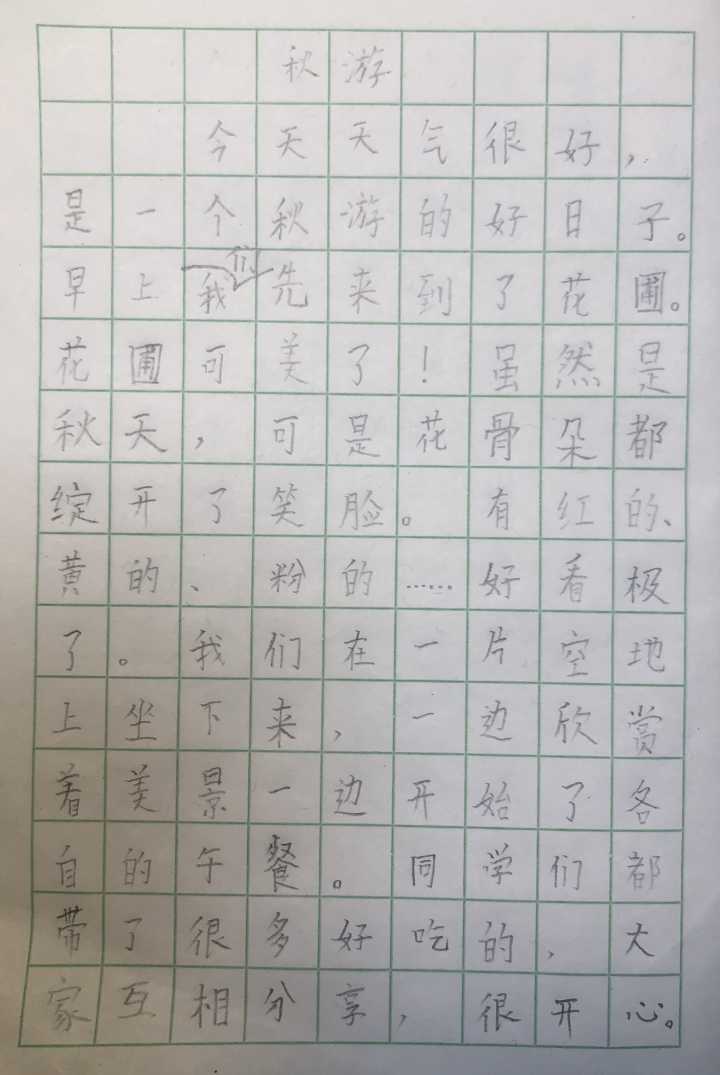 秋游
今天天气很好，
是一个秋游的好日子。
早上我们先来到了花圃。
花圃可美了！虽然是
秋天，可是花骨朵都
绽开了笑脸。有红的、
黄的、粉的……好看极
了。我们在一片空地
上坐下来，一边欣赏
着美景一边开始了各
自的午餐。同学们都
带了很多好吃的，大
家互相分享，很开心。